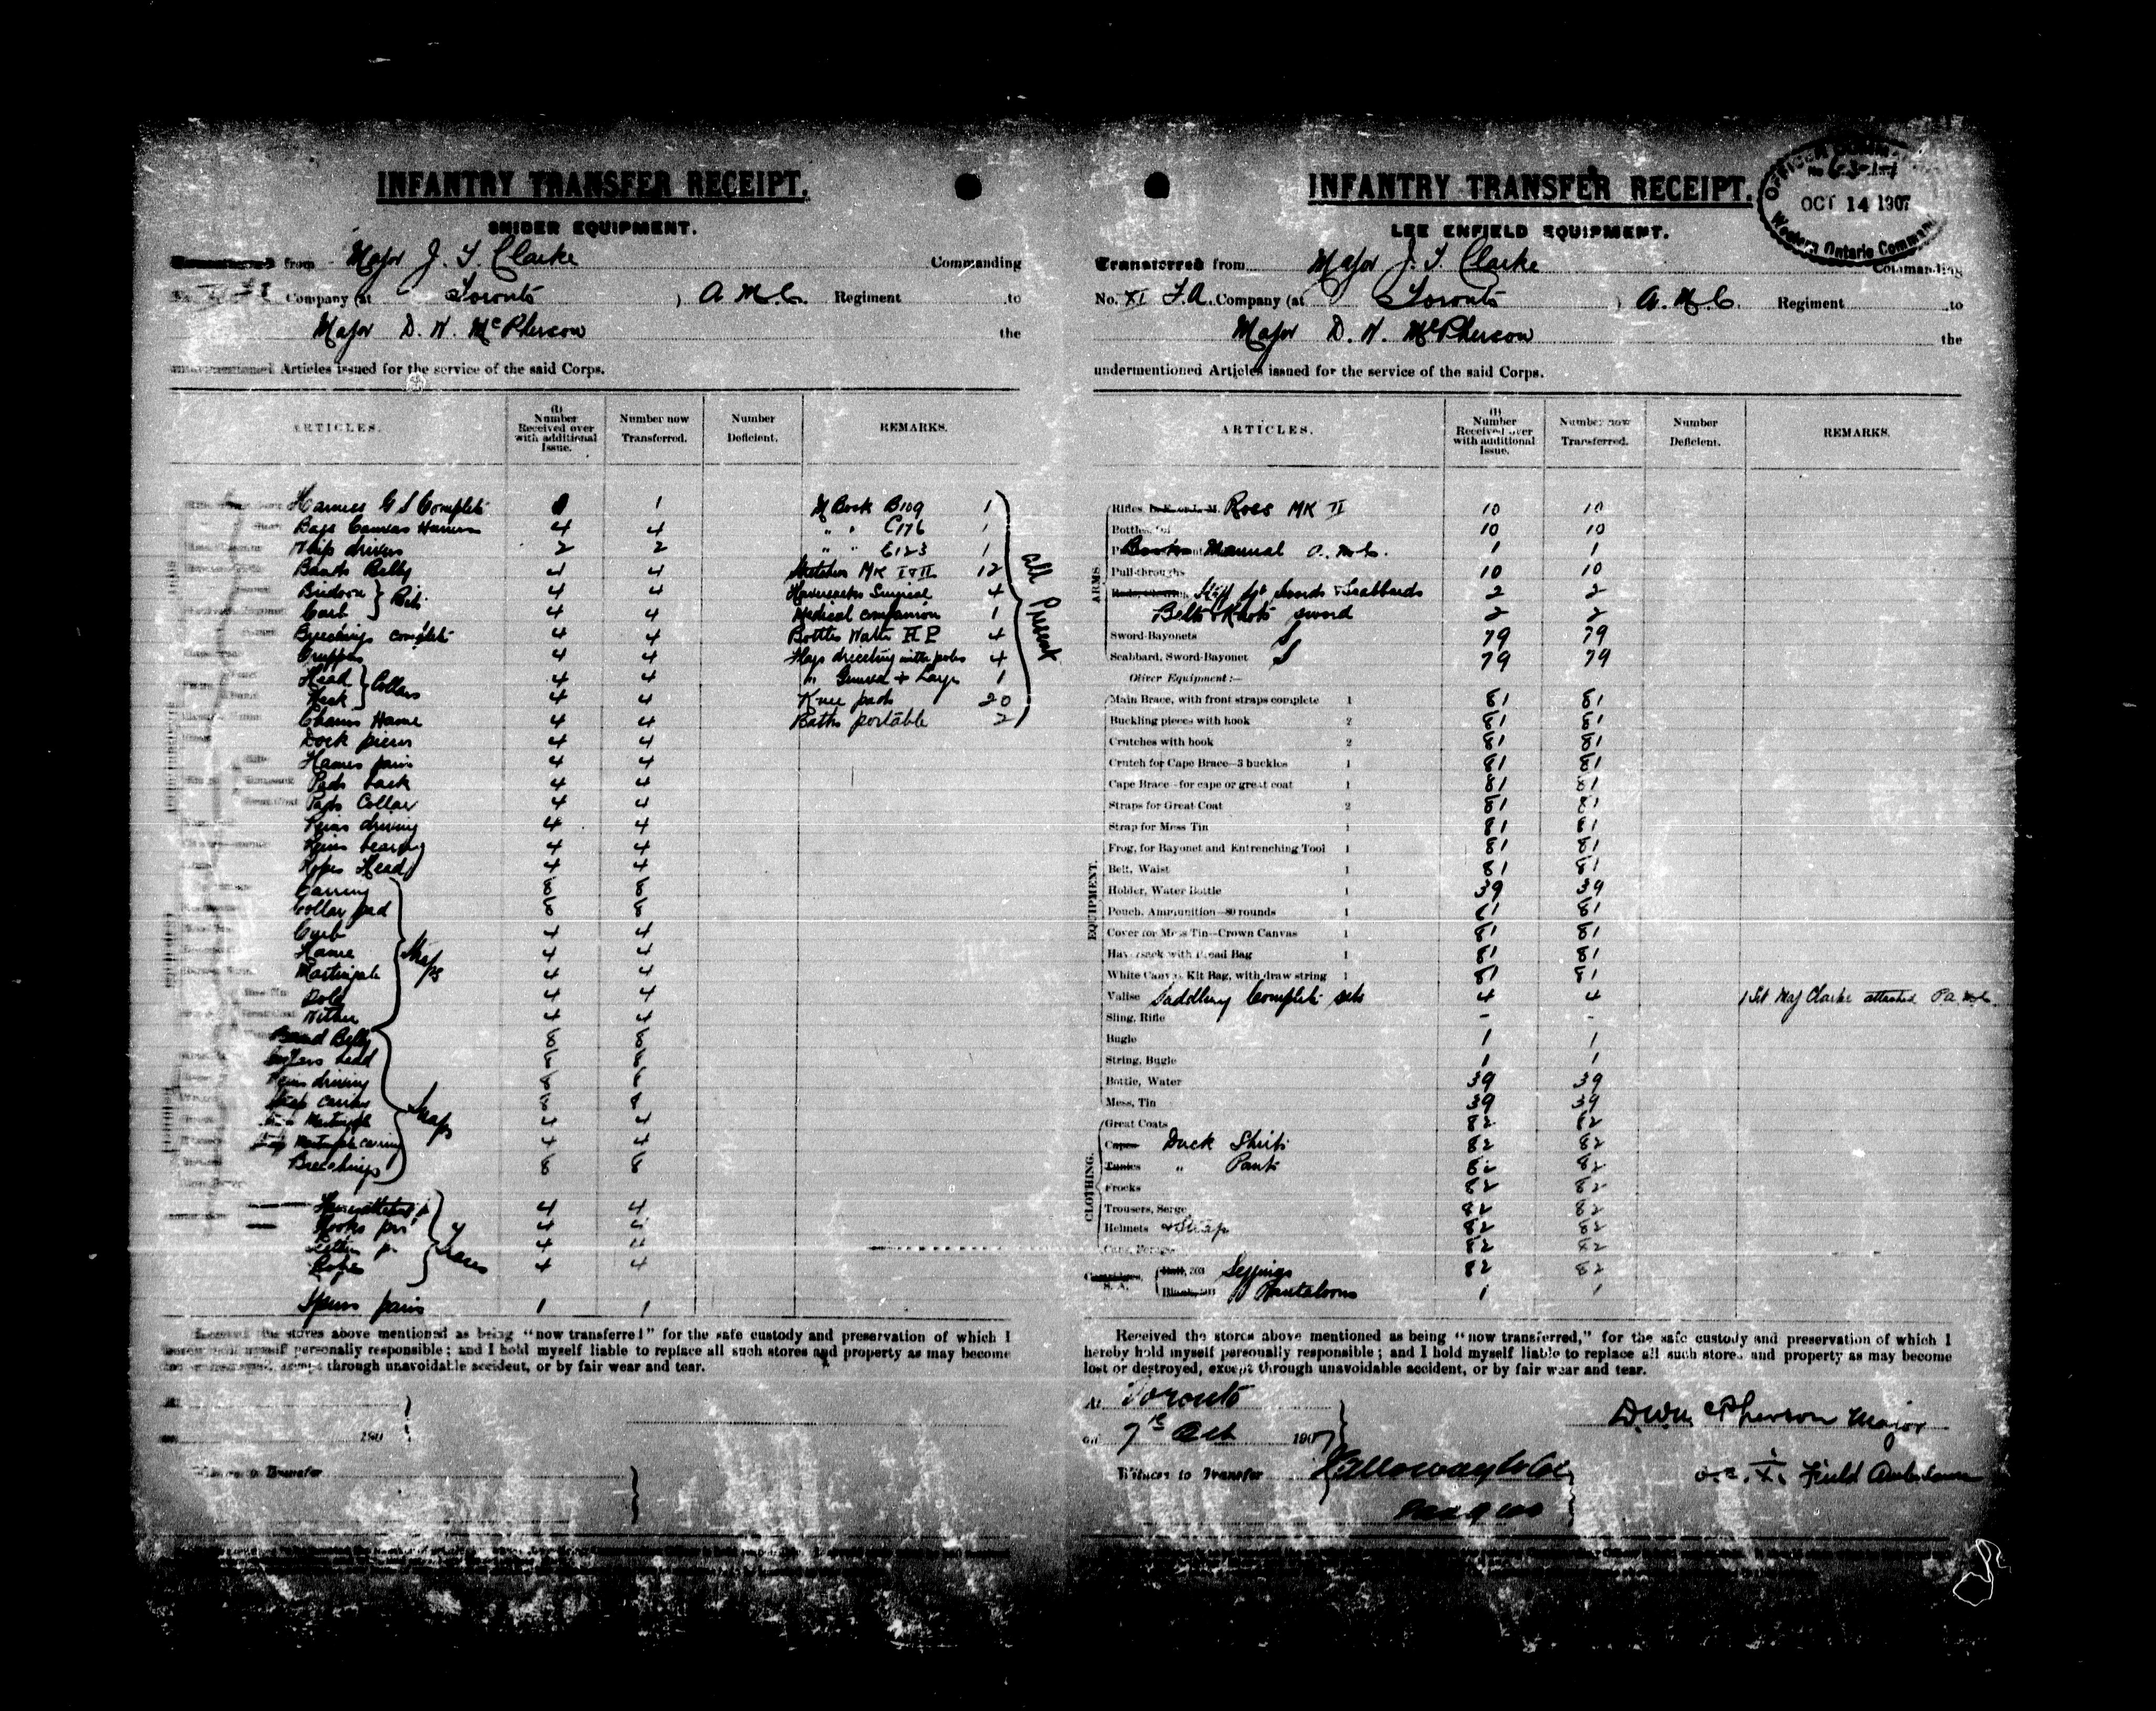 INFANTRY TRANSFER RECEIPT.
SNIDER EQUIPMENT.
from Major J. T. Clarke Commanding
Company (at Toronto ) A M C. Regiment to
Major D. W. McPherson the
Articles issued for the service of the said Corps.
ARTICLES. (1) Number Received over with additional Issue. Number now Transferred. Number Deficient. REMARKS.
Harness G S Complete 1 M Book B109 1
Bags Canvas Harness 4 4 " " C176 1
Whip drivers 2 2 " " 1
Bands Belly 4 4 Stretchers MK I & II 12
Bridoon } Bits 4 4 Haversacks Surgical 4
Curb 4 4 Medical companion 1
Breechings complete 4 4 Bottles Water 4
Cruppers 4 4 Flags directing with poles 4
Head } Collars 4 4 " Geneva + Large 1
Neck 4 4 Knee pads 20
Chains Hame 4 4 Baths portable 2
all Present
Dock pieces 4 4
Hames pairs 4 4
Pads back 4 4
Pads Collar 4 4
Reins driving 4 4
Reins bearing 4 4
Ropes Head 4 4
Carring 8 8
Collar pad 8 8
Curb 4 4
Hame 4 4
Martingale 4 4
Straps
Pole 4 4
Wither 4 4
Band Belly 8 8
head 8 8
Reins driving 8 8
Strap 8 8
Martingale 4 4
Martingale 4 4
Breechings 8 8
4 4
Hooks pr 4 4
pr 4 4
Traces
Ropes 4 4
Spurs pairs 1 1
the stores above mentioned as being "now transferred" for the safe custody and preservation of which I
myself personally responsible; and I hold myself liable to replace all such stores and property as may become
through unavoidable accident, or by fair wear and tear.
190
Transfer
INFANTRY TRANSFER RECEIPT.
LEE ENFIELD EQUIPMENT.
OCT 14 1907
Western Ontario Command
Transferred from Major J. T Clarke Commanding
No. XI F.A. Company (at Toronto ) A. M. C. Regiment to
Major D. W. McPherson the
undermentioned Articles issued for the service of the said Corps.
ARTICLES. (1) Number Received over with additional Issue. Number now Transferred. Number Deficient. REMARKS.
ARMS.
Rifles, Ross MK II 10 10
Bottles, oil 10 10
Manual 1 1
Pull-throughs 10 10
Swords & Scabbards 2 2
Belts & Knots sword 2 2
Sword-Bayonets 79 79
Scabbard, Sword-Bayonet 79 79
Oliver Equipment:—
EQUIPMENT.
Main Brace, with front straps complete 1 81 81
Buckling pieces with hook 2 81 81
Crutches with hook 2 81 81
Crutch for Cape Brace—3 buckles 1 81 81
Cape Brace—for cape or great coat 1 81 81
Straps for Great Coat 2 81 81
Strap for Mess Tin 1 81 81
Frog, for Bayonet and Entrenching Tool 1 81 81
Belt, Waist 1 81 81
Holder, Water Bottle 1 39 39
Pouch, Ammunition—80 rounds 1 81 81
Cover for Mess Tin—Crown Canvas 1 81 81
Haversack with Bread Bag 1 81 81
White Canvas Kit Bag, with draw string 1 81 81
Valise Saddlery Complete sets 4 4 1 Set Maj Clarke attached
Sling, Rifle - -
Bugle 1 1
String, Bugle 1 1
Bottle, Water 39 39
Mess, Tin 39 39
CLOTHING.
Great Coats 82 82
Capes Duck Shirts 82 82
Tunics " Pants 82 82
Frocks 82 82
Trousers, Serge 82 82
Helmets 82 82
82 82
Cartridges, S. A. Ball, 303 Leggings 82 82
Pantaloons 1 1
Received the stores above mentioned as being "now transferred," for the safe custody and preservation of which I
hereby hold myself personally responsible; and I hold myself liable to replace all such stores and property as may become
lost or destroyed, except through unavoidable accident, or by fair wear and tear.
At Toronto
on 7th Oct 1907
McPherson Major
Witness to Transfer
O. C. X. Field Ambulance